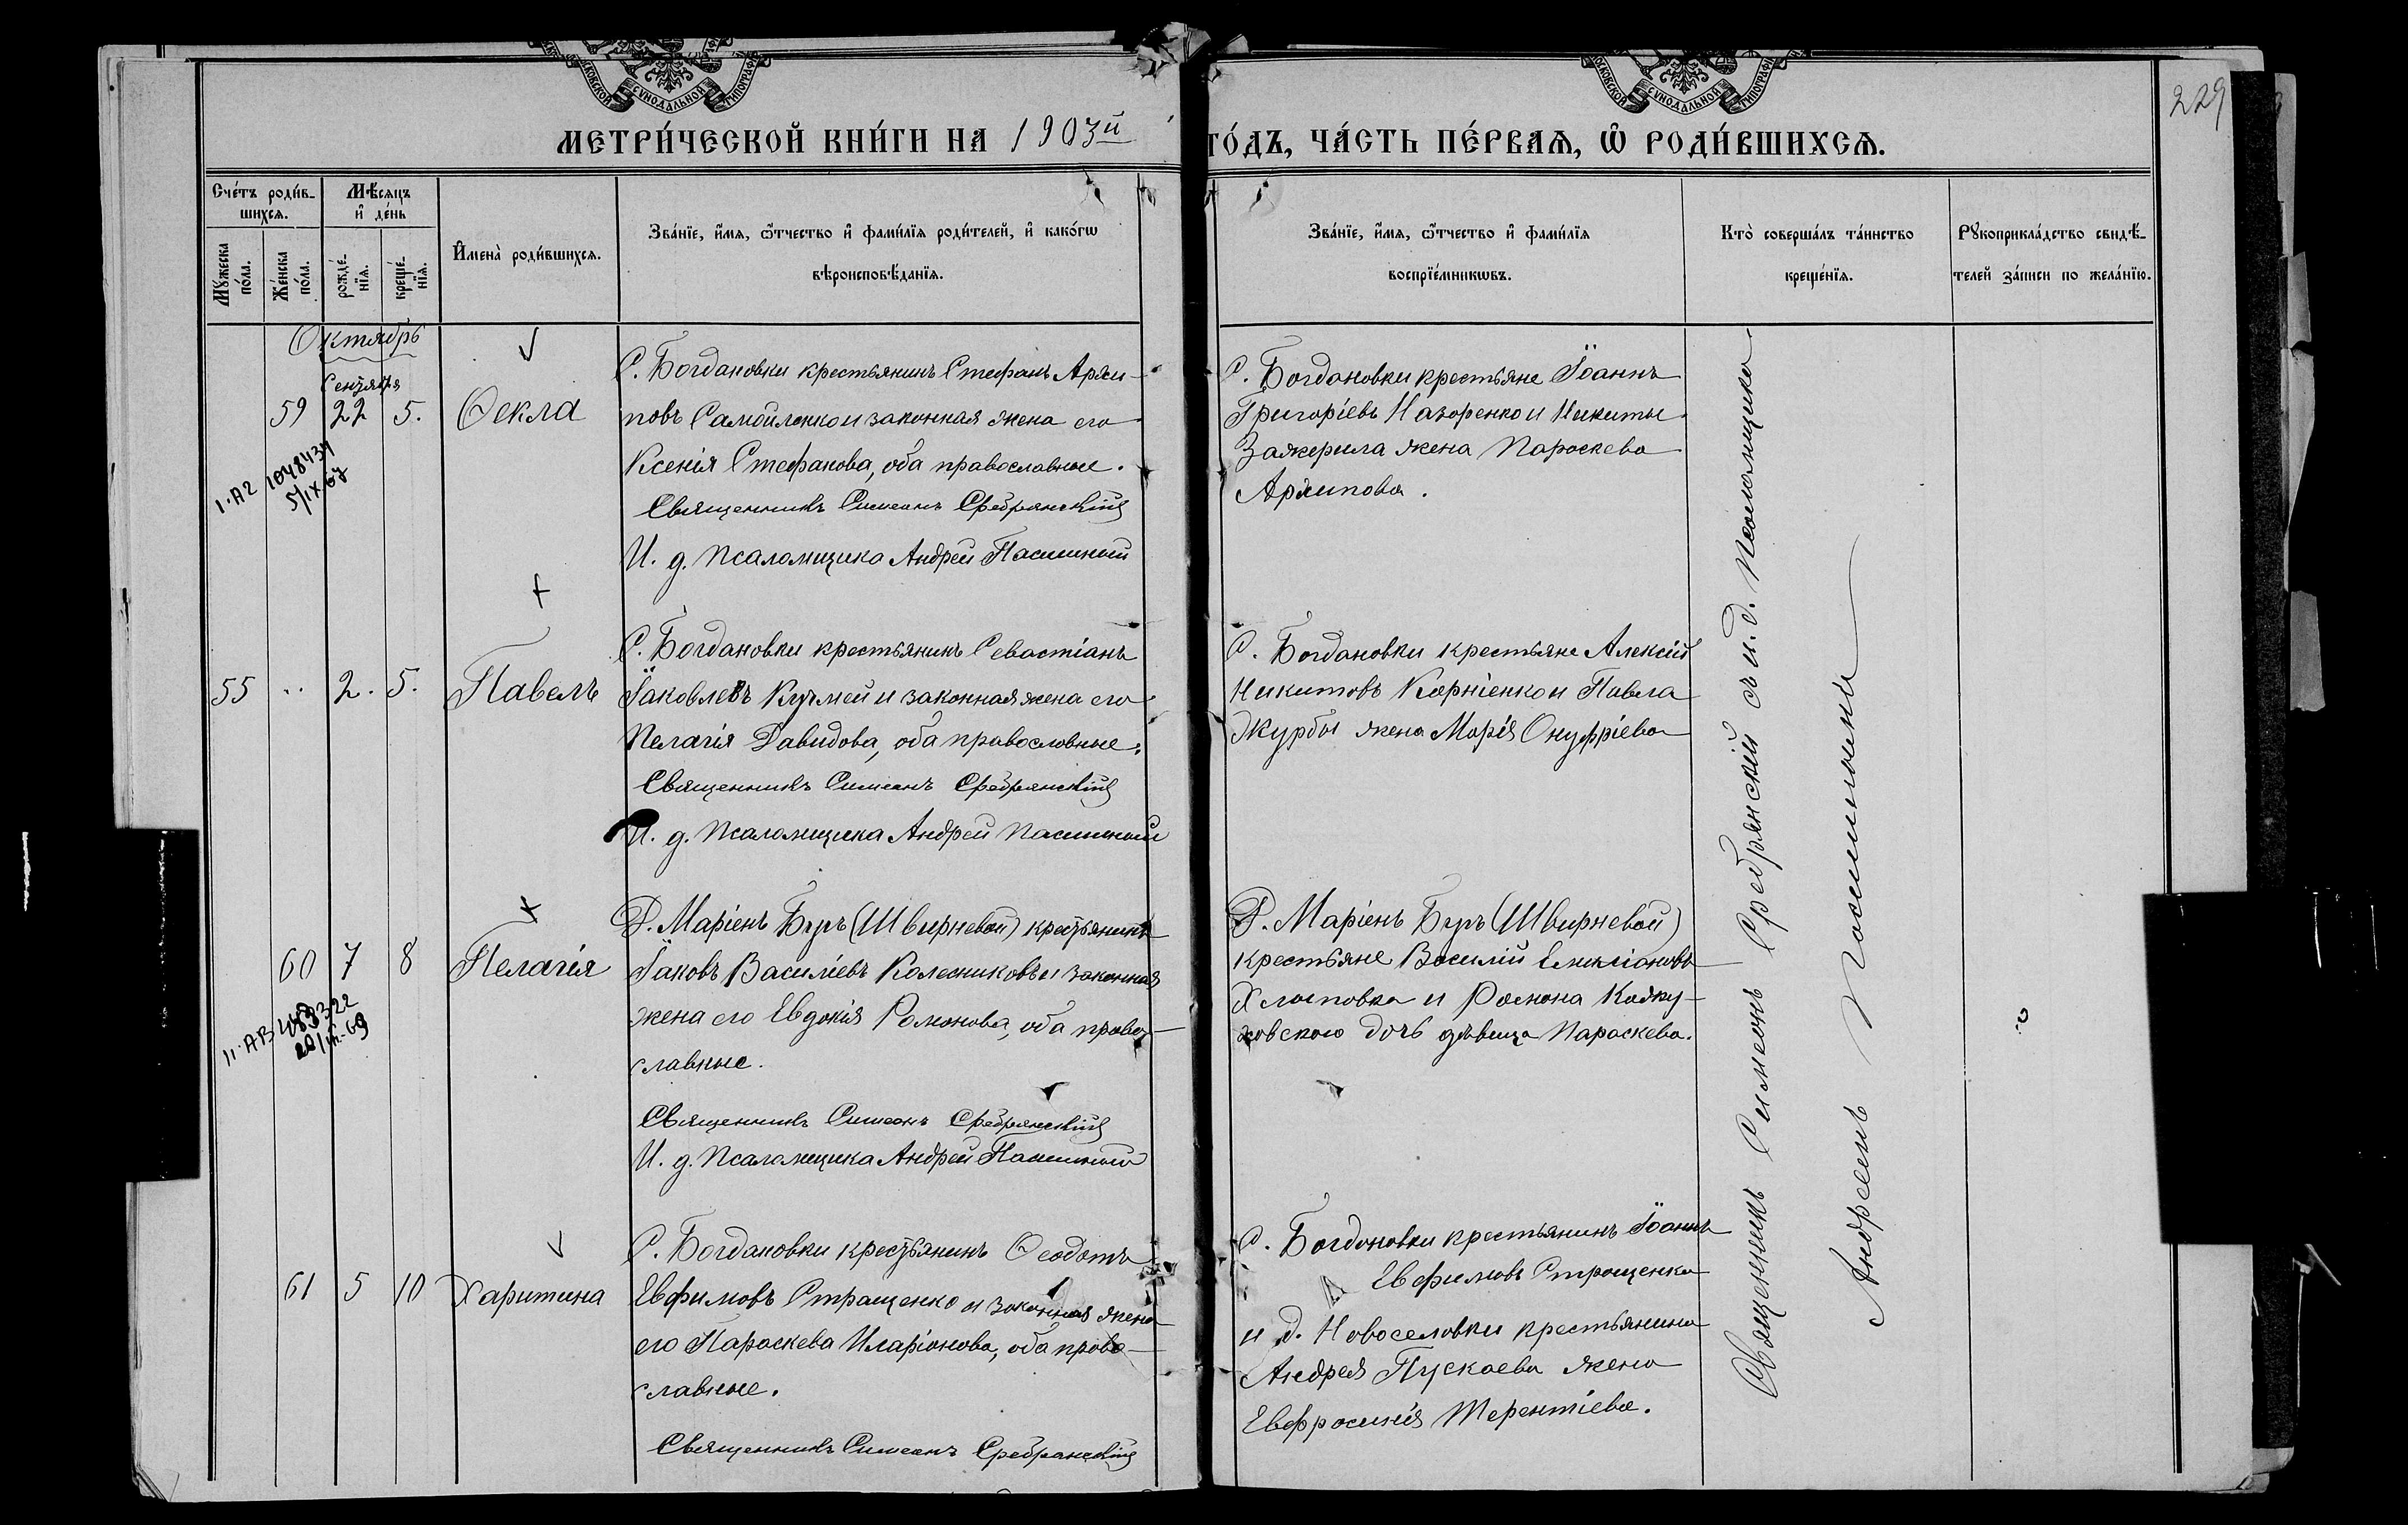 МЕТРИ́ЧЕСКОЙ КНИ́ГИ НА 1903й ГО́ДЪ, ЧА́СТЬ ПЕ́РВАЯ, Ѿ РОДИ́ВШИХСЯ.
229
Сче́тъ роди́в-
шихся.
Мѣ́сяцъ
и҆ де́нь
Мꙋ́жеска по́ла.
Же́нска по́ла.
рожде́-
нїя.
креще́-
нїя.
И҆мена̀ роди́вшихся.
Зва́нїе, и҆́мя, ѻ҆́тчество и҆ фами́лїя роди́телей, и҆ како́гѡ
вѣроисповѣ́данїя.
Зва́нїе, и҆́мя, ѻ҆́тчество и҆ фами́лїя
воспрїе́мникѡвъ.
Кто̀ соверша́лъ та́инство
креще́нїя.
Рꙋкоприкла́дство свидѣ́-
телей за́писи по жела́нїю.
Октябрь
Сентября
59 22 5. Ѳекла
С. Богдановки крестьянинъ Стефанъ Архи-
повъ Самойленко и законная жена его
Ксенія Стефанова, оба православные.
Священникъ Симеонъ Сребрянскій
И. д. псаломщика Андрей Пасишный
С. Богдановки крестьяне Іоаннъ
Григоріевъ Назоренко и Никиты
Зажерила жена Параскева
Архипова.
1·А2 1048434
5/IX 67
55 .. 2. 5. Павелъ
С. Богдановки крестьянинъ Севастіанъ
Іаковлевъ Кучмей и законная жена его
Пелагія Давидова, оба православные.
Священникъ Симеонъ Сребрянскій
И. д. псаломщика Андрей Пасишный
С. Богдановки крестьяне Алексій
Никитовъ Корніенко и Павла
Журбы жена Марія Онуфріева
60 7 8 Пелагія
Д. Маріенъ Буръ (Швирневой) крестьянинъ
Іаковъ Василіевъ Колесниковъ и законная
жена его Евдокія Романова, оба право-
славные.
Священникъ Симеонъ Сребрянскій
И. д. псаломщика Андрей Пасишный
Д. Маріенъ Буръ (Швирневой)
крестьяне Василій Емиліановъ
и Романа
дочь дѣвица Параскева.
61 5 10 Харитина
С. Богдановки крестьянинъ Ѳеодотъ
Евфимовъ Стращенко и законная жена
его Параскева Иларіонова, оба право-
славные.
Священникъ Симеонъ Сребрянскій
С. Богдановки крестьянинъ Іоаннъ
Евфимовъ Стращенко
и д. Новоселовки крестьянина
Андрея Пускаева жена
Евфросинія Терентіева.
Священникъ Симеонъ Сребрянскій съ и. д. псаломщика
Андреемъ Пасишнымъ